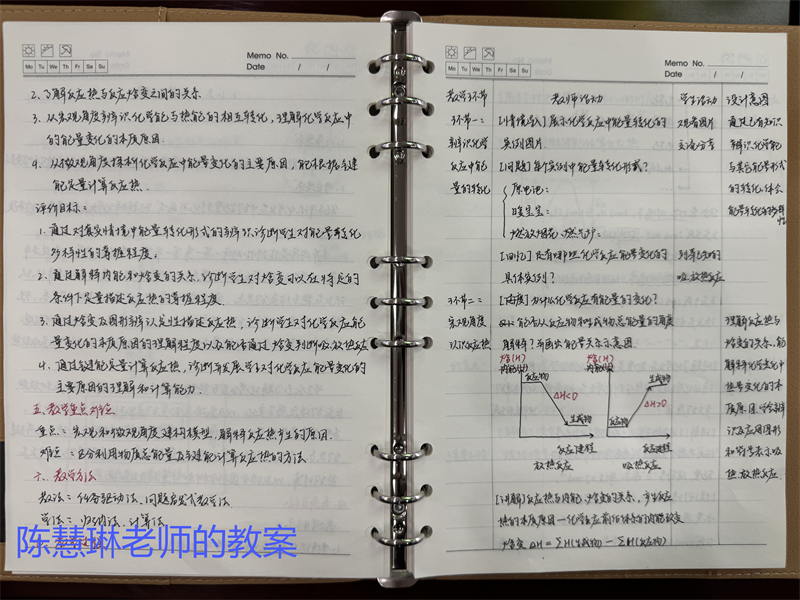 Memo No.
Mo Tu We Th Fr Sa Su
Date / /
2. 了解反应热与反应焓变之间的关系
3. 从宏观角度辨识化学能与热能的相互转化，理解化学反应中
的能量变化的本质原因.
4. 从微观角度探析化学反应中能量变化的主要原因，能根据键
能定量计算反应热.
评价目标：
1. 通过对真实情境中能量转化形式的辨识，诊断学生对能量转化
多样性的掌握程度.
2. 通过解释内能和焓变的关系，诊断学生对焓变可以在特定的
条件下定量描述反应热的掌握程度.
3. 通过焓变及图形辨认定性描述反应热，诊断学生对化学反应能
量变化的本质原因的理解程度以及能否通过焓变判断吸、放热反应
4. 通过键能定量计算反应热，诊断并发展学生对化学反应能量变化的
主要原因的理解和计算能力.
五、教学重点难点
重点：宏观和微观角度建构模型，解释反应热产生的原因.
难点：充分利用物质总能量及键能计算反应热的方法
六、教学方法
教法：任务驱动法、问题启发式教学法
学法：归纳法、计算法
陈慧琳老师的教案
Memo No.
Mo Tu We Th Fr Sa Su
Date / /
教学环节 教师活动 学生活动 设计意图
环节一：
辨识化学
反应中能
量的转化
[情境导入] 展示化学反应中能量转化的
实例图片
[问题] 每个实例中能量转化形式？
原电池：
暖宝宝：
燃放烟花、燃气炉：
[回忆] 还有哪些化学反应能量变化的
具体实例？
观看图片
交流分享
列举已知的
吸、放热反应
通过已有知识
辨识化学能
与其他能量形式
的转化，体会
能量转化的多样
性
环节二：
宏观角度
认识反应热
[过渡] 为什么化学反应有能量的变化？
Q1：能否从反应物和生成物总能量的角度
解释？并画出能量关系示意图.
焓(H)
内能(U)
反应物
ΔH<0
生成物
反应进程
放热反应
焓(H)
内能(U)
生成物
ΔH>0
反应物
反应进程
吸热反应
理解反应热与
焓变的关系，能
解释化学变化中
热量变化的本
质原因，会辨
识及应用图形
和符号表示吸
热、放热反应
[讲解] 反应热与内能、焓变的关系，产生反应
热的本质原因—化学反应前后体系的内能改变
焓变 ΔH = ΣH(生成物) − ΣH(反应物)